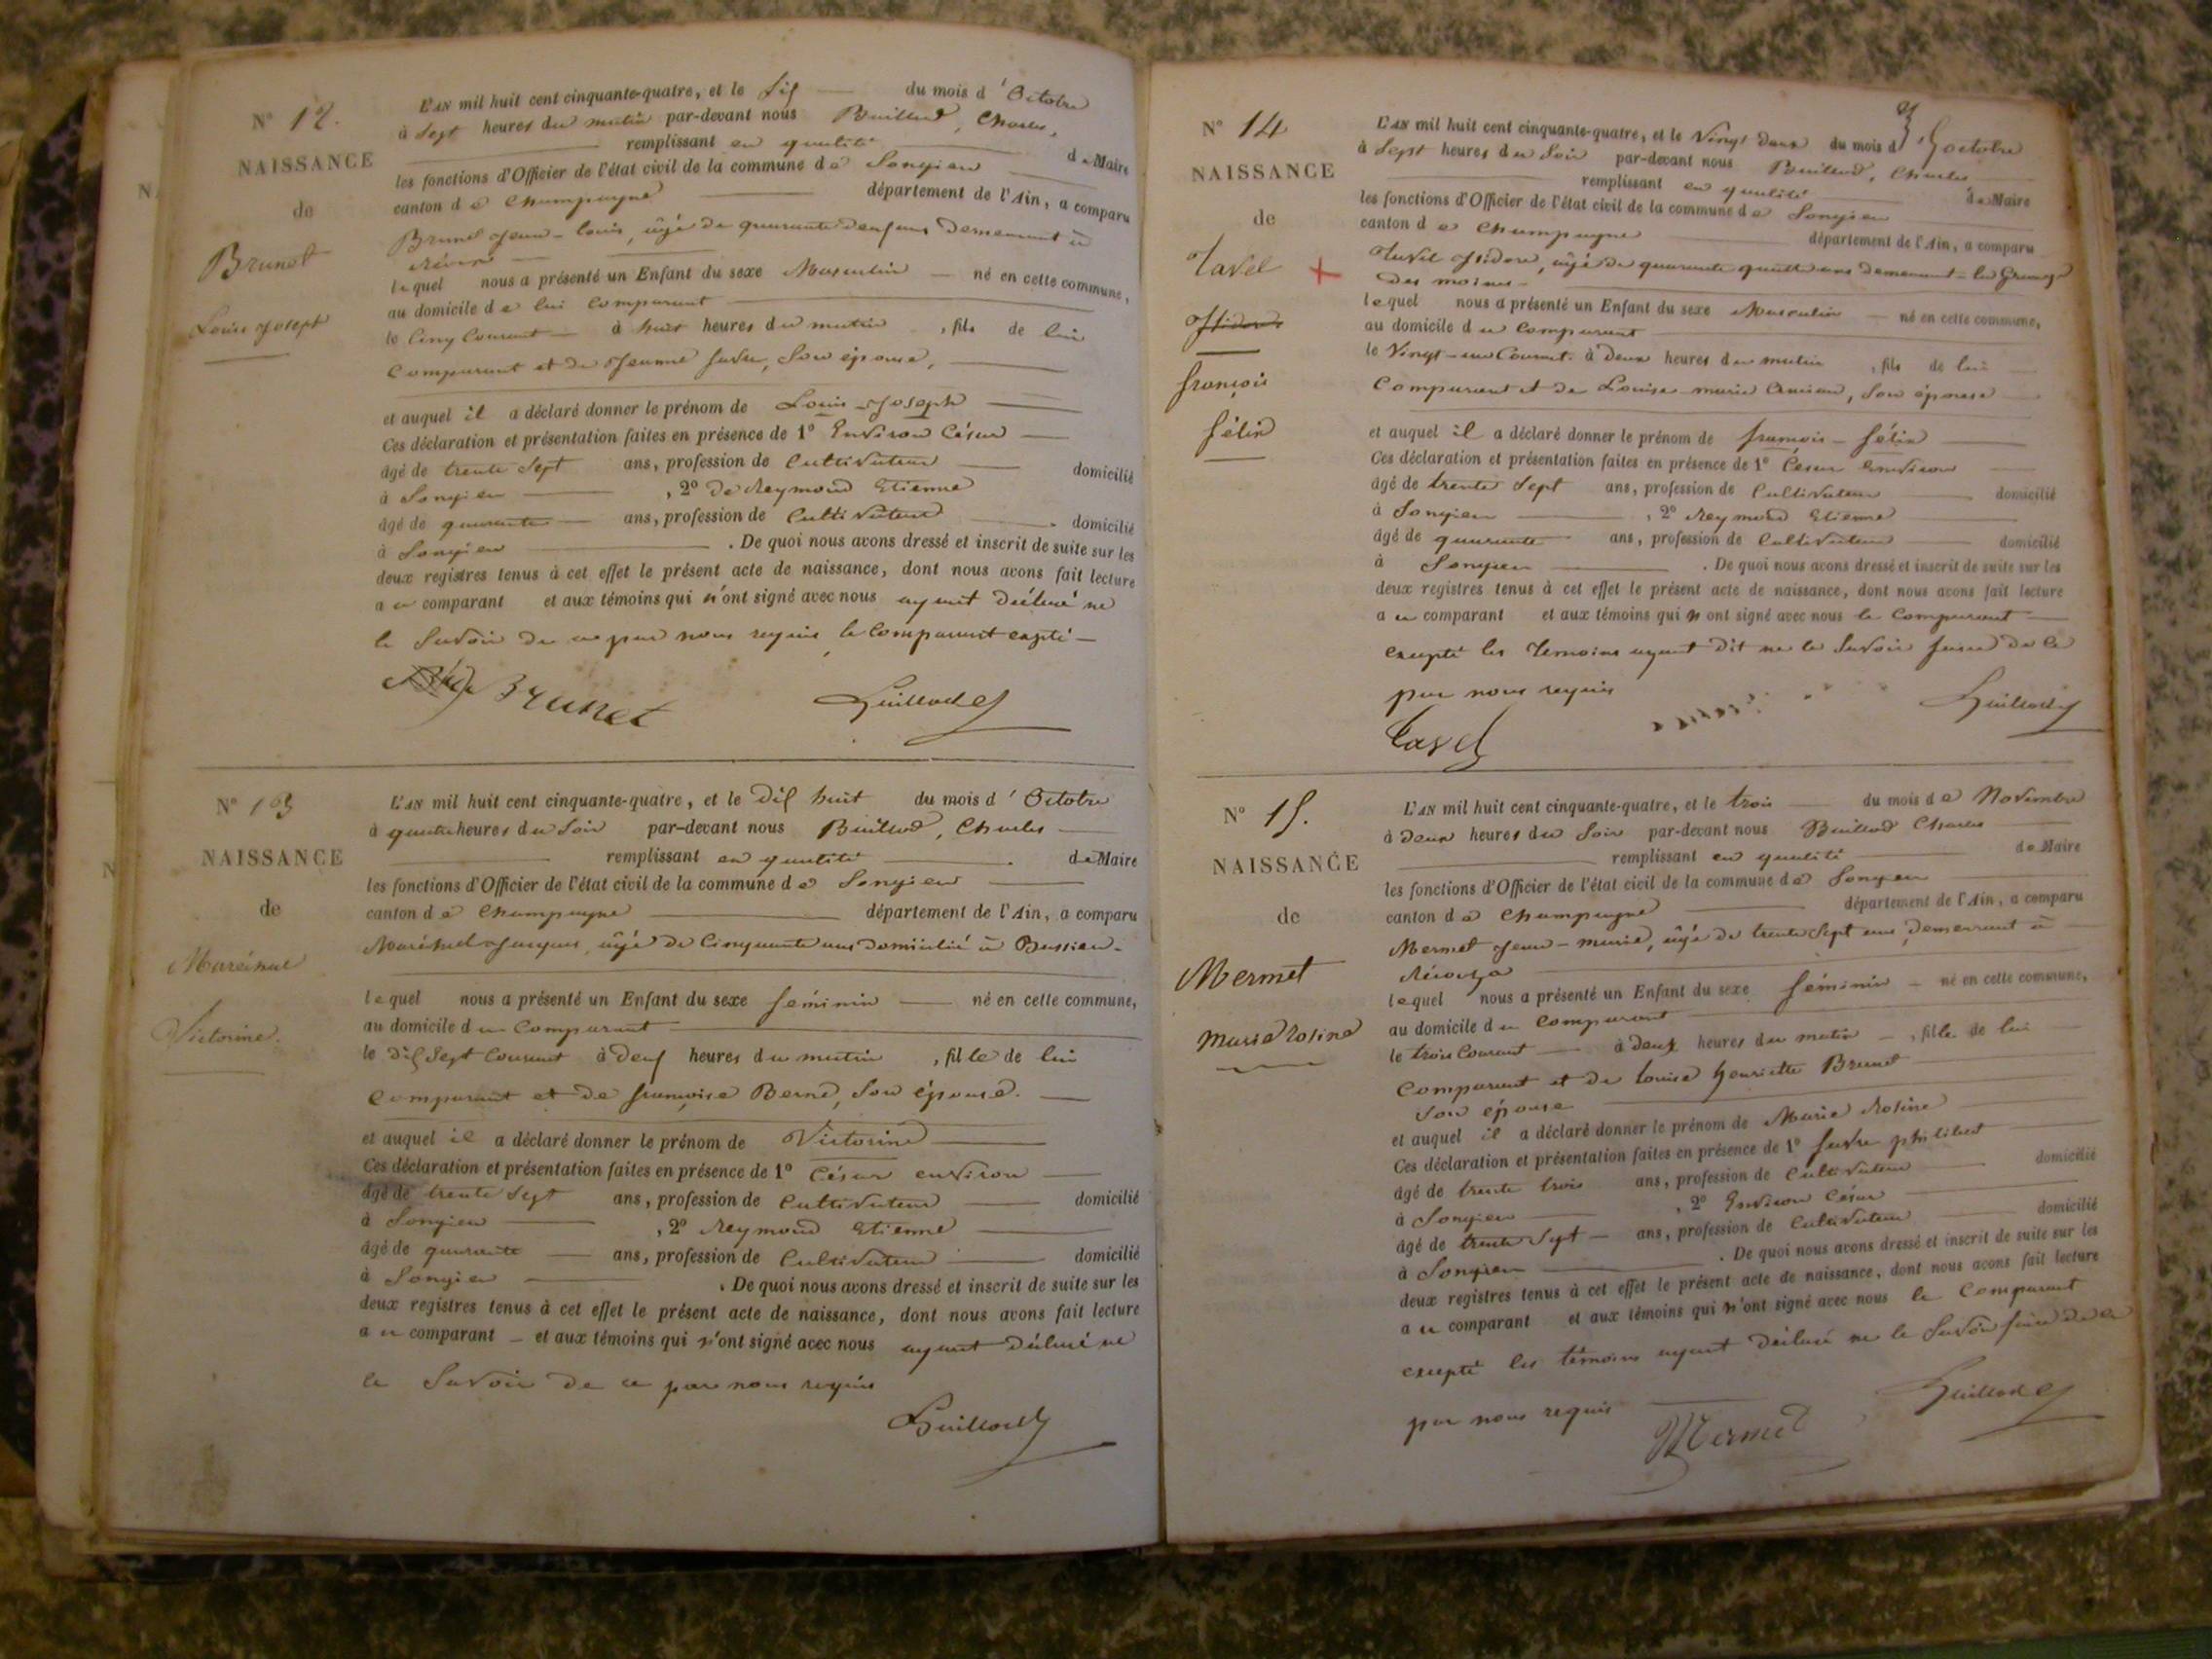 N° 12.
NAISSANCE
de
Brunet
Louis Joseph
L'AN mil huit cent cinquante-quatre, et le Six du mois d'Octobre
à Sept heures du matin par-devant nous Buillod, Charles,
remplissant en qualité de Maire
les fonctions d'Officier de l'état civil de la commune de Songieu
canton de Champagne département de l'Ain, a comparu
Brunet Jean-Louis, âgé de quarante deux ans demeurant à
lequel nous a présenté un Enfant du sexe Masculin né en cette commune,
au domicile de lui Comparant
le Cinq Courant à huit heures du matin, fils de lui
Comparant et de Jeanne favre, Son épouse,
et auquel il a déclaré donner le prénom de Louis-Joseph
Ces déclaration et présentation faites en présence de 1° Environ César
âgé de trente Sept ans, profession de Cultivateur domicilié
à Songieu, 2° de Reymond Etienne
âgé de quarante ans, profession de Cultivateur domicilié
à Songieu. De quoi nous avons dressé et inscrit de suite sur les
deux registres tenus à cet effet le présent acte de naissance, dont nous avons fait lecture
au comparant et aux témoins qui n'ont signé avec nous ayant Déclaré ne
le Savoir de ce par nous requis le Comparant expté
Brunet
Buillod
N° 13
NAISSANCE
de
Maréchal
Victorine.
L'AN mil huit cent cinquante-quatre, et le Dix huit du mois d'Octobre
à quatre heures du Soir par-devant nous Buillod, Charles
remplissant en qualité de Maire
les fonctions d'Officier de l'état civil de la commune de Songieu
canton de Champagne département de l'Ain, a comparu
Maréchal Jacques, âgé de Cinquante ans domicilié à Bassieu.
lequel nous a présenté un Enfant du sexe féminin né en cette commune,
au domicile du Comparant
le Dix Sept Courant à Deux heures du matin, fille de lui
Comparant et de françoise Berne, Son épouse.
et auquel il a déclaré donner le prénom de Victorine
Ces déclaration et présentation faites en présence de 1° César environ
âgé de trente Sept ans, profession de Cultivateur domicilié
à Songieu, 2° Reymond Etienne
âgé de quarante ans, profession de Cultivateur domicilié
à Songieu. De quoi nous avons dressé et inscrit de suite sur les
deux registres tenus à cet effet le présent acte de naissance, dont nous avons fait lecture
au comparant et aux témoins qui n'ont signé avec nous ayant Déclaré ne
le Savoir de ce par nous requis
Buillod
N° 14
NAISSANCE
de
Tavel
Isidore
françois
félix
L'AN mil huit cent cinquante-quatre, et le Vingt Deux du mois d'octobre
à Sept heures du Soir par-devant nous Buillod, Charles
remplissant en qualité de Maire
les fonctions d'Officier de l'état civil de la commune de Songieu
canton de Champagne département de l'Ain, a comparu
Tavel Isidore, âgé de quarante quatre ans demeurant la Grange
des moines
lequel nous a présenté un Enfant du sexe Masculin né en cette commune,
au domicile du Comparant
le Vingt-un Courant. à Deux heures du matin, fils de lui
Comparant et de Louise marie, Son épouse
et auquel il a déclaré donner le prénom de françois-félix
Ces déclaration et présentation faites en présence de 1° Cesar Environ
âgé de trente Sept ans, profession de Cultivateur domicilié
à Songieu, 2° Reymond Etienne
âgé de quarante ans, profession de Cultivateur domicilié
à Songieu. De quoi nous avons dressé et inscrit de suite sur les
deux registres tenus à cet effet le présent acte de naissance, dont nous avons fait lecture
au comparant et aux témoins qui n'ont signé avec nous le Comparant
excepté les Temoins ayant Dit ne le Savoir faire de ce
par nous requis
Tavel
Buillod
N° 15.
NAISSANCE
de
Mermet
Marie Rosine
L'AN mil huit cent cinquante-quatre, et le trois du mois de Novembre
à Deux heures du Soir par-devant nous Buillod Charles
remplissant en qualité de Maire
les fonctions d'Officier de l'état civil de la commune de Songieu
canton de Champagne département de l'Ain, a comparu
Mermet Jean-marie, âgé de trente Sept ans, demeurant à
lequel nous a présenté un Enfant du sexe féminin né en cette commune,
au domicile du Comparant
le trois Courant à Deux heures du matin, fille de lui
Comparant et de Louise henriette Brunet
Son épouse
et auquel il a déclaré donner le prénom de Marie Rosine
Ces déclaration et présentation faites en présence de 1° favre philibert
âgé de trente trois ans, profession de Cultivateur domicilié
à Songieu, 2° Environ César
âgé de trente Sept ans, profession de Cultivateur domicilié
à Songieu. De quoi nous avons dressé et inscrit de suite sur les
deux registres tenus à cet effet le présent acte de naissance, dont nous avons fait lecture
au comparant et aux témoins qui n'ont signé avec nous le Comparant
excepté les témoins ayant Déclaré ne le Savoir faire de ce
par nous requis
Mermet
Buillod